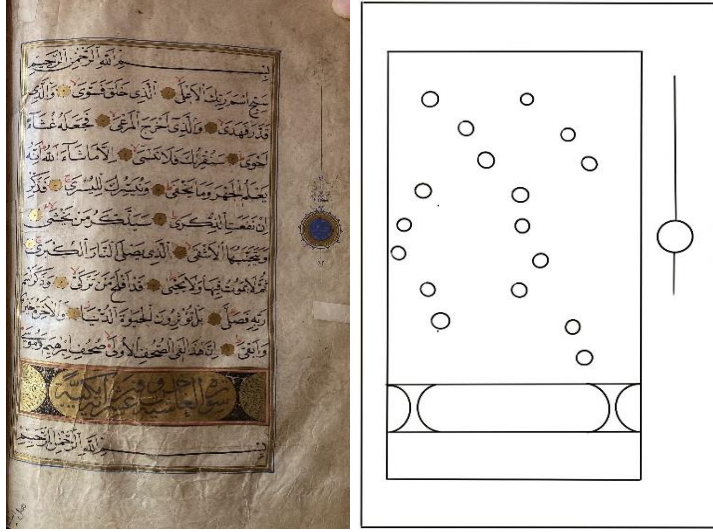 بِسْمِ اللهِ الرَّحْمٰنِ الرَّحِيمِ
سَبِّحِ اسْمَ رَبِّكَ الْاَعْلَى الَّذِى خَلَقَ فَسَوّٰى وَالَّذِى
قَدَّرَ فَهَدٰى وَالَّذِى اَخْرَجَ الْمَرْعٰى فَجَعَلَهُ غُثَآءً
اَحْوٰى سَنُقْرِئُكَ فَلَا تَنْسٰى اِلَّا مَا شَآءَ اللهُ اِنَّهُ
يَعْلَمُ الْجَهْرَ وَمَا يَخْفٰى وَنُيَسِّرُكَ لِلْيُسْرٰى فَذَكِّرْ
اِنْ نَفَعَتِ الذِّكْرٰى سَيَذَّكَّرُ مَنْ يَخْشٰى
وَيَتَجَنَّبُهَا الْاَشْقَى الَّذِى يَصْلَى النَّارَ الْكُبْرٰى
ثُمَّ لَا يَمُوتُ فِيهَا وَلَا يَحْيٰى قَدْ اَفْلَحَ مَنْ تَزَكّٰى وَذَكَرَ اسْمَ
رَبِّهِ فَصَلّٰى بَلْ تُؤْثِرُونَ الْحَيٰوةَ الدُّنْيَا وَالْاٰخِرَةُ خَيْرٌ
وَاَبْقٰى اِنَّ هٰذَا لَفِى الصُّحُفِ الْاُولٰى صُحُفِ اِبْرٰهِيمَ وَمُوسٰى
سورة الغاشية مكية
بِسْمِ اللهِ الرَّحْمٰنِ الرَّحِيمِ